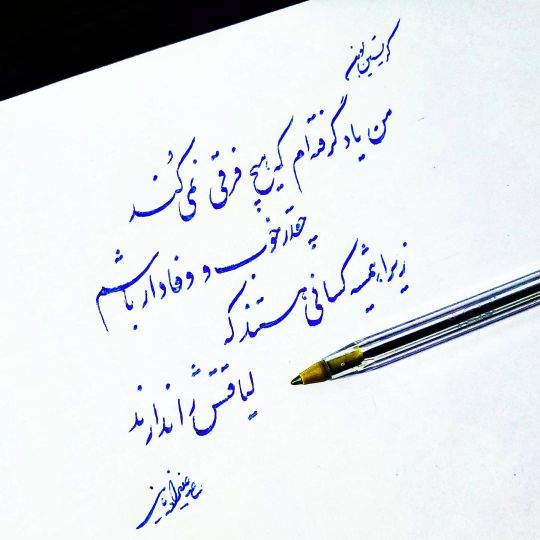 کریستین بوبن
من یاد گرفته‌ام که هیچ فرقی نمی‌کُند
چقدر خوب و وفادار باشم
زیرا همیشه کسانی هستند که
لیاقتش را ندارند